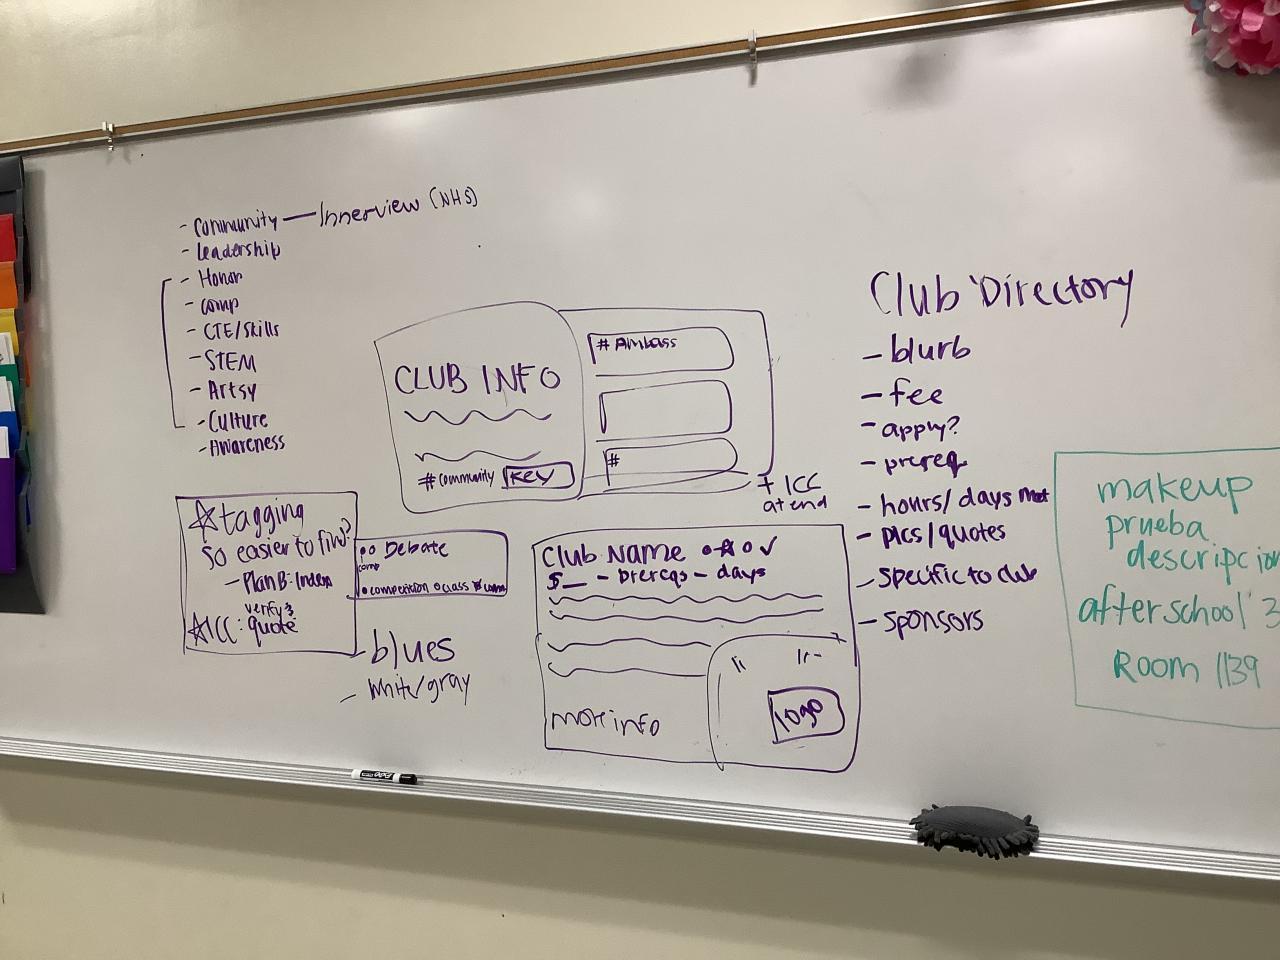 - Community — Innerview (NHS)
- Leadership
- Honor
- comp
- CTE/Skills
- STEM
- Artsy
- Culture
- Awareness
CLUB INFO
#community KEY
# Ambass
#
+ ICC
at end
☆tagging
so easier to find?
- Plan B: Index
verify &
☆ICC: quote
Debate
comp
competition class comm
- blues
- white/gray
Club Name
$__ - prereqs - days
more info
logo
Club Directory
- blurb
- fee
- apply?
- prereq
- hours/days meet
- pics/quotes
- specific to club
- sponsors
makeup
prueba
descripcion
afterschool 3
Room 1139